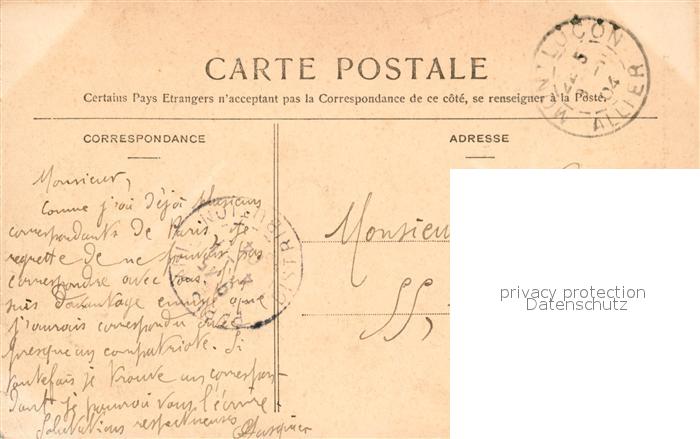 CARTE POSTALE
Certains Pays Etrangers n'acceptant pas la Correspondance de ce côté, se renseigner à la Poste.
MONTLUÇON
ALLIER
CORRESPONDANCE
ADRESSE
Monsieur,
Comme j'ai déjà plusieurs
correspondants de Paris, je
regrette de ne pouvoir pas
correspondre avec vous
suis davantage ennuyé que
j'aurais correspondu avec
presque un compatriote. Si
toutefois je trouve un correspon-
dant je pourrai vous l'écrire.
Salutations respectueuses
DISTRIBUTION
PARIS
Monsieur
55,
privacy protection
Datenschutz